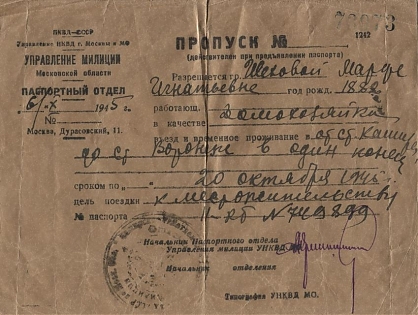 НКВД—СССР
Управление НКВД г. Москвы и МО
УПРАВЛЕНИЕ МИЛИЦИИ
Московской области
ПАСПОРТНЫЙ ОТДЕЛ
6/X 1945 г.
№
Москва, Дурасовский, 11.
ПРОПУСК №
(действителен при предъявлении паспорта)
1942
Разрешается гр. Шеховой Марфе
Игнатьевне год рожд. 1882
работающ.
в качестве домохозяйка
въезд и временное проживание в от ст Кашира
до ст Воронеж в один конец
сроком по 20 октября
цель поездки к месту жительству
№ паспорта II-РТ № 749899
Начальник Паспортного отдела
Управления милиции УНКВД
Начальник отделения
Типография УНКВД МО.